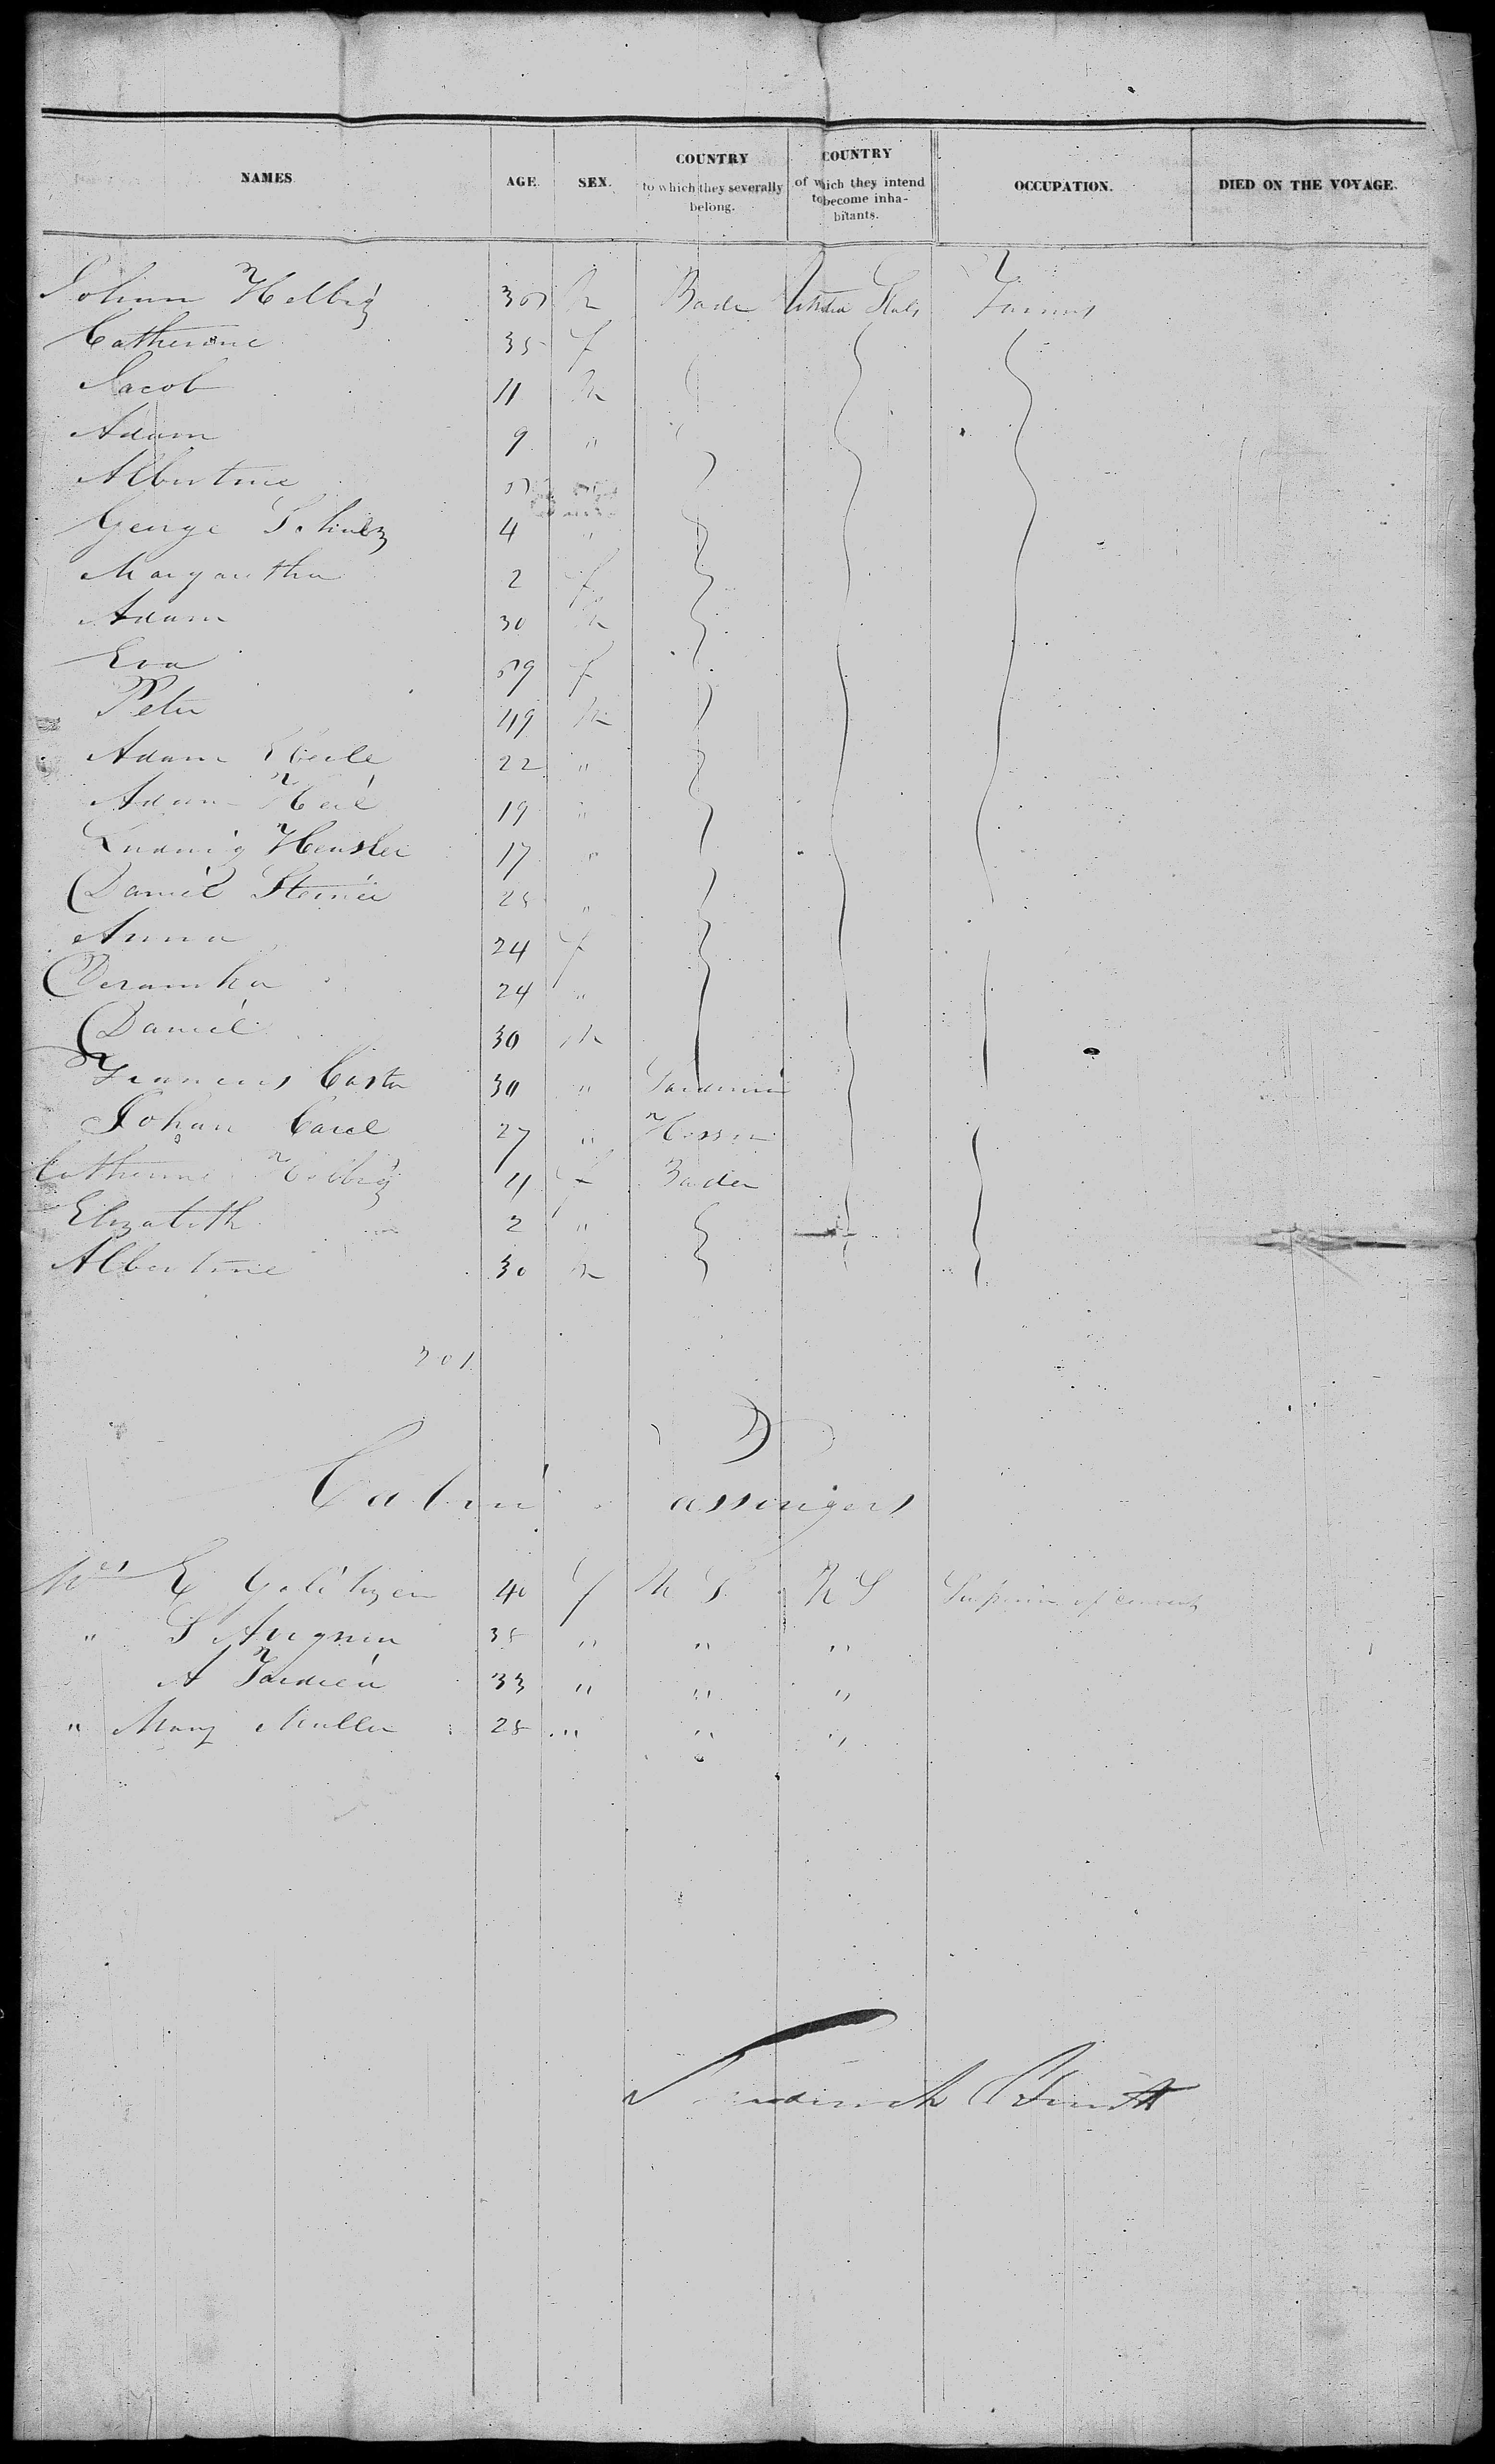 NAMES AGE. SEX. COUNTRY to which they severally belong. COUNTRY of which they intend to become inhabitants. OCCUPATION. DIED ON THE VOYAGE.
Johann Helbig 36 M Baden United States Farmer
Catherine 35 f
Jacob 11 M
Adam 9 "
Albertine
George Schulz 4 "
Margaretha 2 f
Adam 30 M
Eva 59 f
Peter 49 M
Adam Eberle 22 "
Adam Heil 19 "
Ludwig Hensler 17 "
Daniel Steiner 28 "
Anna 24 f
Veranika 24 "
Daniel 30 M
Francis Costa 30 " Sardinia
Johan Carel 27 " Hessen
Catherine Helbig 4 f Baden
Elizabeth 2 "
Albertine 30 M
201
Cabin Passengers
E Galitzen 40 f U S U S Superior of convent
" 38 " " "
A Tardieu 33 " " "
" Mary Muller 28 " " "